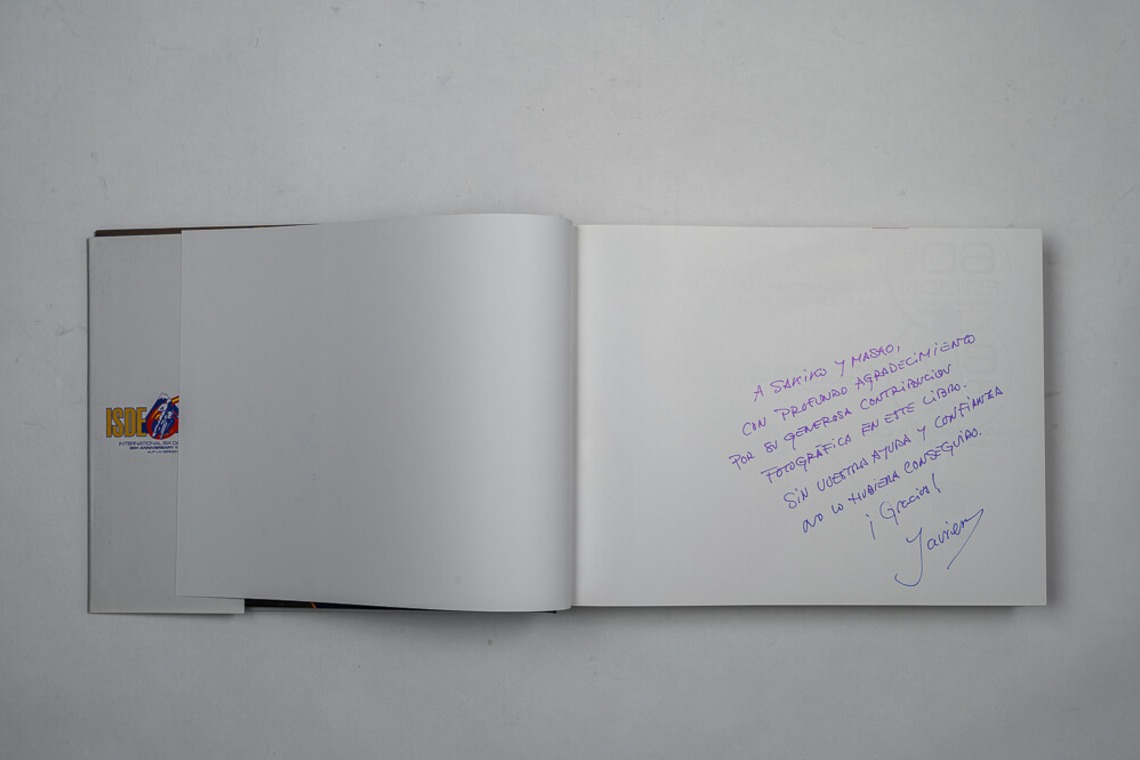 ISDE
INTERNATIONAL SIX DA
A SAKIKO Y MASAO,
CON PROFUNDO AGRADECIMIENTO
POR SU GENEROSA CONTRIBUCION
FOTOGRÁFICA EN ESTE LIBRO.
SIN VUESTRA AYUDA Y CONFIANZA
NO LO HUBIERA CONSEGUIDO.
¡Gracias!
Javier